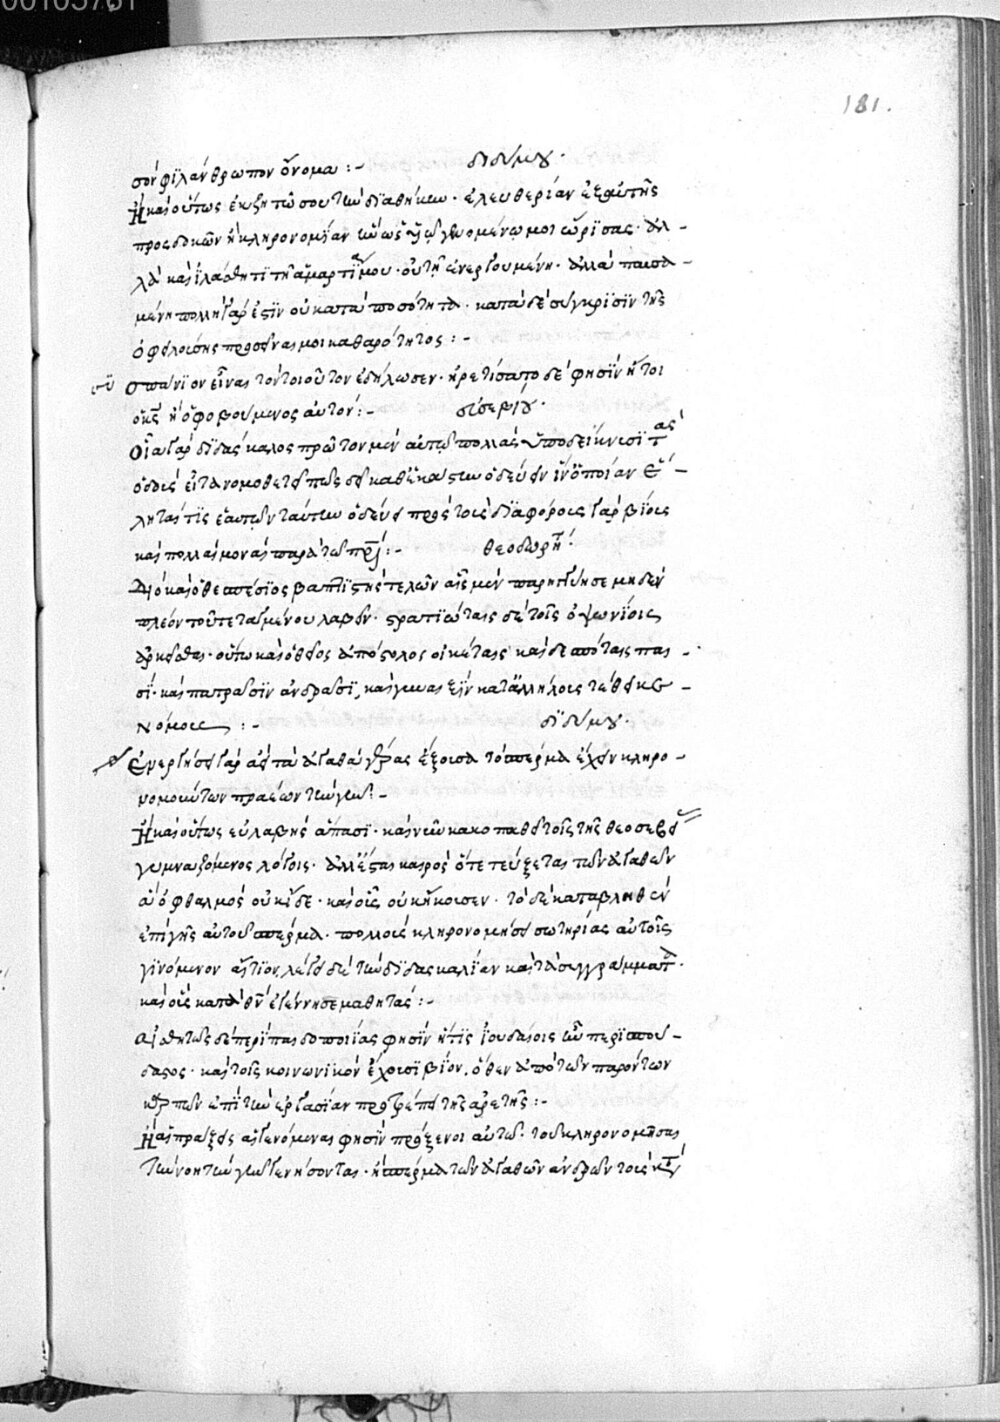 00105731
181.
σὸν φϊλάνθρωπον ὄνομα :- διδύμου.
Ἢ καὶ οὕτως ἐκζητῶ σου τὴν διαθήκην. ἐλευθερίαν ἐξ αὐτῆς
προσδοκῶν ἢ κληρονομίαν ὡς υἱῷ γενομένῳ μοι ὥρισας. ἀλ-
λὰ καὶ ἱλάσθητι τῇ ἁμαρτίᾳ μου. οὐ τῇ ἐνεργουμένῃ. ἀλλὰ παυσα-
μένῃ πολλὴ γάρ ἐστιν οὐ κατὰ ποσότητα. κατὰ δὲ σύγκρισϊν τῆς
ὀφειλούσης προσεῖναί μοι καθαρότητος :-
Σπάνϊον εἶναι τὸν τοιοῦτον ἐδήλωσεν. ᾑρετίσατο δέ φησϊν ἤτοι
ὁ θς ἢ ὁ φοβούμενος αὐτόν :- εὐσεβίου.
Οἷα γὰρ διδάσκαλος πρῶτον μὲν αὐτῷ πολλὰς ὑποδείκνυσϊ τὰς
ὁδοὺς εἶτα νομοθετεῖ πῶς δεῖ καθ' ἑκάστην ὁδεύειν ἵν' ὁποίαν ἕ-
ληταί τϊς ἑαυτῷ ταύτην ὁδεύει πρὸς τοὺς διαφόρους γὰρ βίους
καὶ πολλαὶ μοναὶ παρὰ τῷ πρί :- θεοδωρήτ.
Διὸ καὶ ὁ θεσπέσϊος βαπτϊστὴς τελώναις μὲν παρηγγύησε μηδὲν
πλέον τοῦ τεταγμένου λαβεῖν. στρατϊώταις δὲ τοῖς ὀψωνίοις
ἀρκεῖσθαι. οὕτω καὶ ὁ θεῖος ἀπόστολος οἰκέταις καὶ δεσπόταις παι-
σϊ. καὶ πατράσϊν ἀνδράσϊ, καὶ γυναιξϊν κατάλληλους τέθεικε
νόμους :- διδύμου.
Ἐνεργήσει γὰρ ἀεὶ τὰ ἀγαθὰ ἕξουσα τὸ σπέρμα ἔχειν κληρο-
νομοῦν τῶν πραέων τὴν γῆν :-
Ἢ καὶ οὕτως εὐλαβὴς ἅπασϊ. κἂν νῦν κακοπαθεῖ τοῖς τῆς θεοσεβεί
γυμναζόμενος λόγοις. ἀλλ' ἔσται καιρὸς ὅτε τεύξεται τῶν ἀγαθῶν
ἃ ὀφθαλμὸς οὐκ εἶδε. καὶ οὖς οὐκ ἤκουσεν. τὸ δὲ καταβληθὲν
ἐπὶ γῆς αὐτοῦ σπέρμα. πολλοὺς κληρονομήσει σωτηρίας αὐτοῖς
γϊνόμενον αἴτϊον, λέγει δὲ τὴν διδασκαλίαν καὶ τὰ συγγράμματ.
καὶ οὓς κατὰ θν ἐγέννησε μαθητάς :-
Αἰσθητῶς δὲ περὶ παιδοποιΐας φησϊν ἥτϊς ἰουδαίοις ἦν περϊσπού-
δαστος. καὶ τοῖς κοινωνικὸν ἔχουσϊ βίον. ὅθεν ἀπὸ τῶν παρόντων
ἐπὶ τὴν ἐργασίαν προτρέπει τῆς ἀρετῆς :-
Ἢ αἱ πράξεις αἱ γενόμεναι φησϊν πρόξενοι αὐτῷ. τοῦ κληρονομῆσαι
τὴν νοητὴν γῆν γενήσονται. ἢ σπέρμα τῶν ἀγαθῶν ἀνδρῶν τοὺς